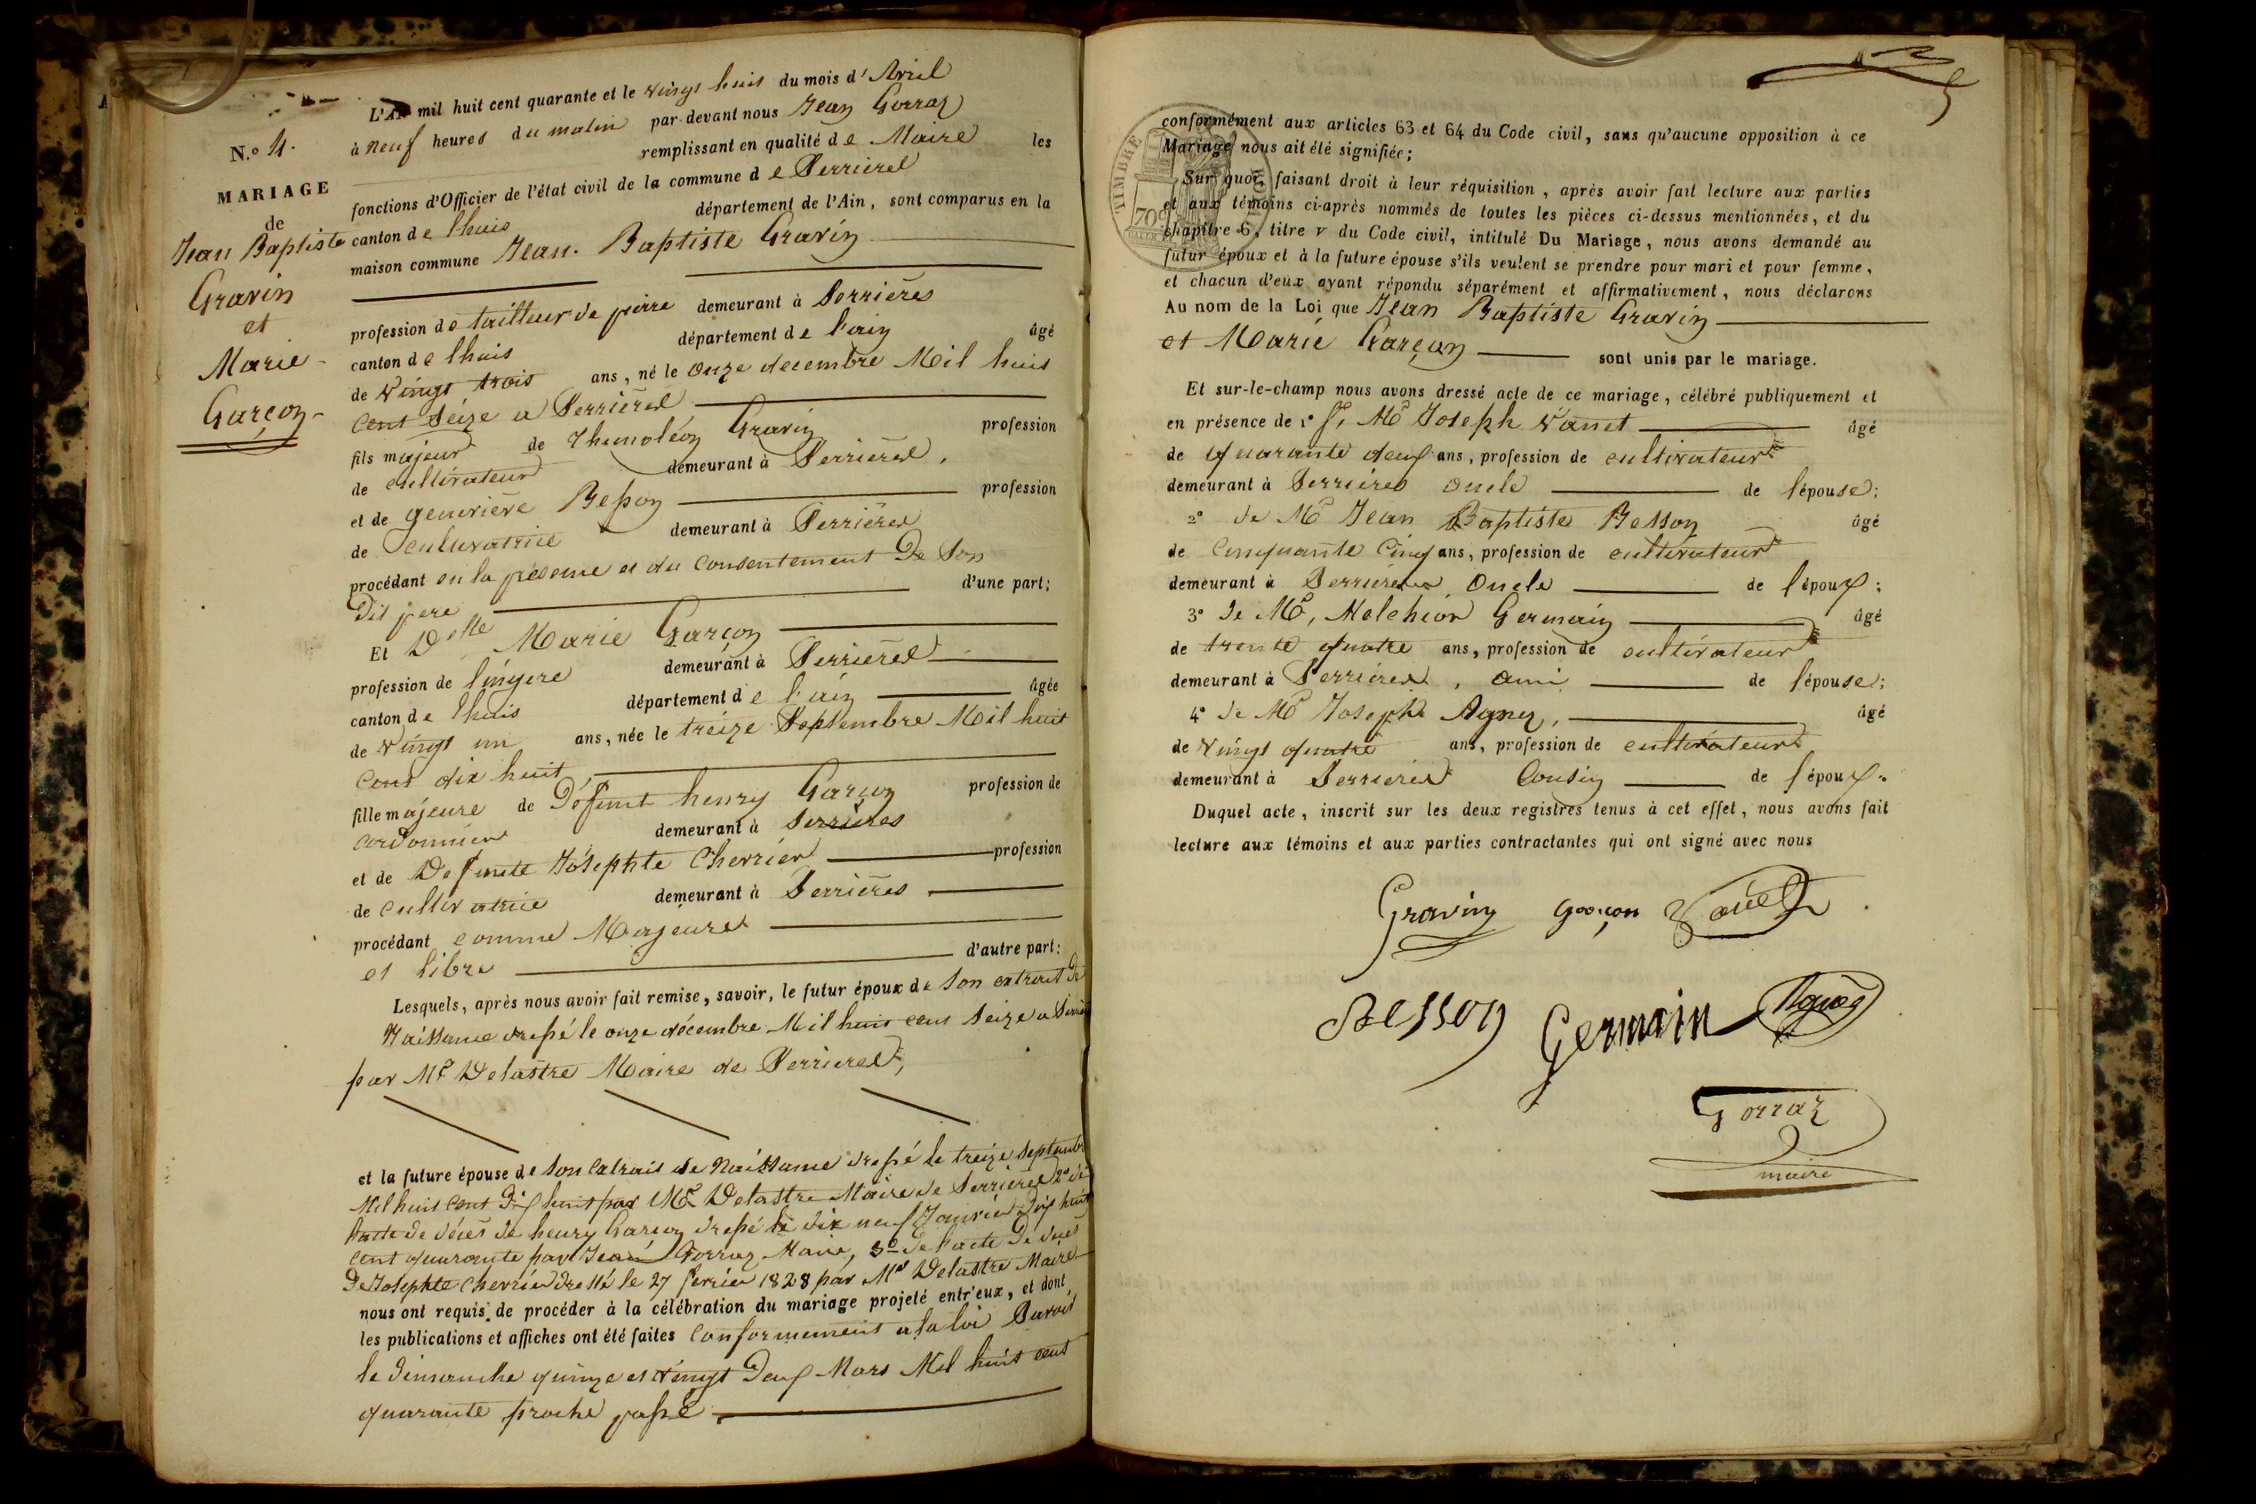 N.o 4.
MARIAGE
de
Jean Baptiste
Gravin
et
Marie
Garçon
L'An mil huit cent quarante et le vingt huit du mois d'Avril
à neuf heures du matin par-devant nous Jean Gorraz
remplissant en qualité de Maire les
fonctions d'Officier de l'état civil de la commune de Serrieres
canton de lhuis département de l'Ain, sont comparus en la
maison commune Jean-Baptiste Gravin
profession de tailleur de pierre demeurant à Serrières
canton de lhuis département de l'ain âgé
de vingt trois ans, né le onze decembre Mil huit
cent seize a Serrieres
fils majeur de Thimoléon Gravin profession
de cultivateur demeurant à Serrieres,
et de genevieve Besson profession
de cultivatrice demeurant à Serrieres
procédant en la présence et du consentement De Son
Dit pere d'une part;
Et Delle Marie Garçon
profession de lingere demeurant à Serrieres
canton de lhuis département de l'ain âgée
de vingt un ans, née le treize Septembre Mil huit
cent dix huit
fille majeure de Défunt henry Garçon profession de
cordonnier demeurant à Serrieres
et de Defunte Josephte Cherrier profession
de cultivatrice demeurant à Serrières
procédant comme Majeure
et libre d'autre part:
Lesquels, après nous avoir fait remise, savoir, le futur époux de Son extrait De
Naissance dressé le onze décembre Mil huit cent Seize a
par Mr Delastre Maire de Serrieres,
et la future épouse de Son extrait de Naissance dressé le treize Septembre
Mil huit cent Dix huit par Mr Delastre Maire de Serrieres 2o de
l'acte de décès de henry Garçon dressé le dix neuf Janvier Dix huit
cent quarante par Jean Gorraz Maire, 3o de l'acte De décès
De Josephte Cherrier dressé le 27 fevrier 1828 par Mr Delastre Maire
nous ont requis de procéder à la célébration du mariage projeté entr'eux, et dont
les publications et affiches ont été faites conformement a la loi Savoir
le dimanche quinze et vingt Deux Mars Mil huit cent
quarante proche passé
TIMBRE
70c
conformément aux articles 63 et 64 du Code civil, sans qu'aucune opposition à ce
Mariage nous ait été signifiée;
Sur quoi, faisant droit à leur réquisition, après avoir fait lecture aux parties
et aux témoins ci-après nommés de toutes les pièces ci-dessus mentionnées, et du
chapitre 6, titre v du Code civil, intitulé Du Mariage, nous avons demandé au
futur époux et à la future épouse s'ils veulent se prendre pour mari et pour femme,
et chacun d'eux ayant répondu séparément et affirmativement, nous déclarons
Au nom de la Loi que Jean Baptiste Gravin
et Marie Garçon sont unis par le mariage.
Et sur-le-champ nous avons dressé acte de ce mariage, célébré publiquement et
en présence de 1o Mr Joseph âgé
de quarante deux ans, profession de cultivateur
demeurant à Serrieres oncle de l'épouse;
2o de Mr Jean Baptiste Besson âgé
de Cinquante Cinq ans, profession de cultivateur
demeurant à Serrieres Oncle de l'époux;
3o de Mr, Melchior Germain âgé
de trente quatre ans, profession de cultivateur
demeurant à Serrieres, ami de l'épouse;
4o de Mr Joseph Agnez, âgé
de vingt quatre ans, profession de cultivateur
demeurant à Serrieres Cousin de l'époux.
Duquel acte, inscrit sur les deux registres tenus à cet effet, nous avons fait
lecture aux témoins et aux parties contractantes qui ont signé avec nous
Gravin garçon
Besson Germain
Gorraz
maire